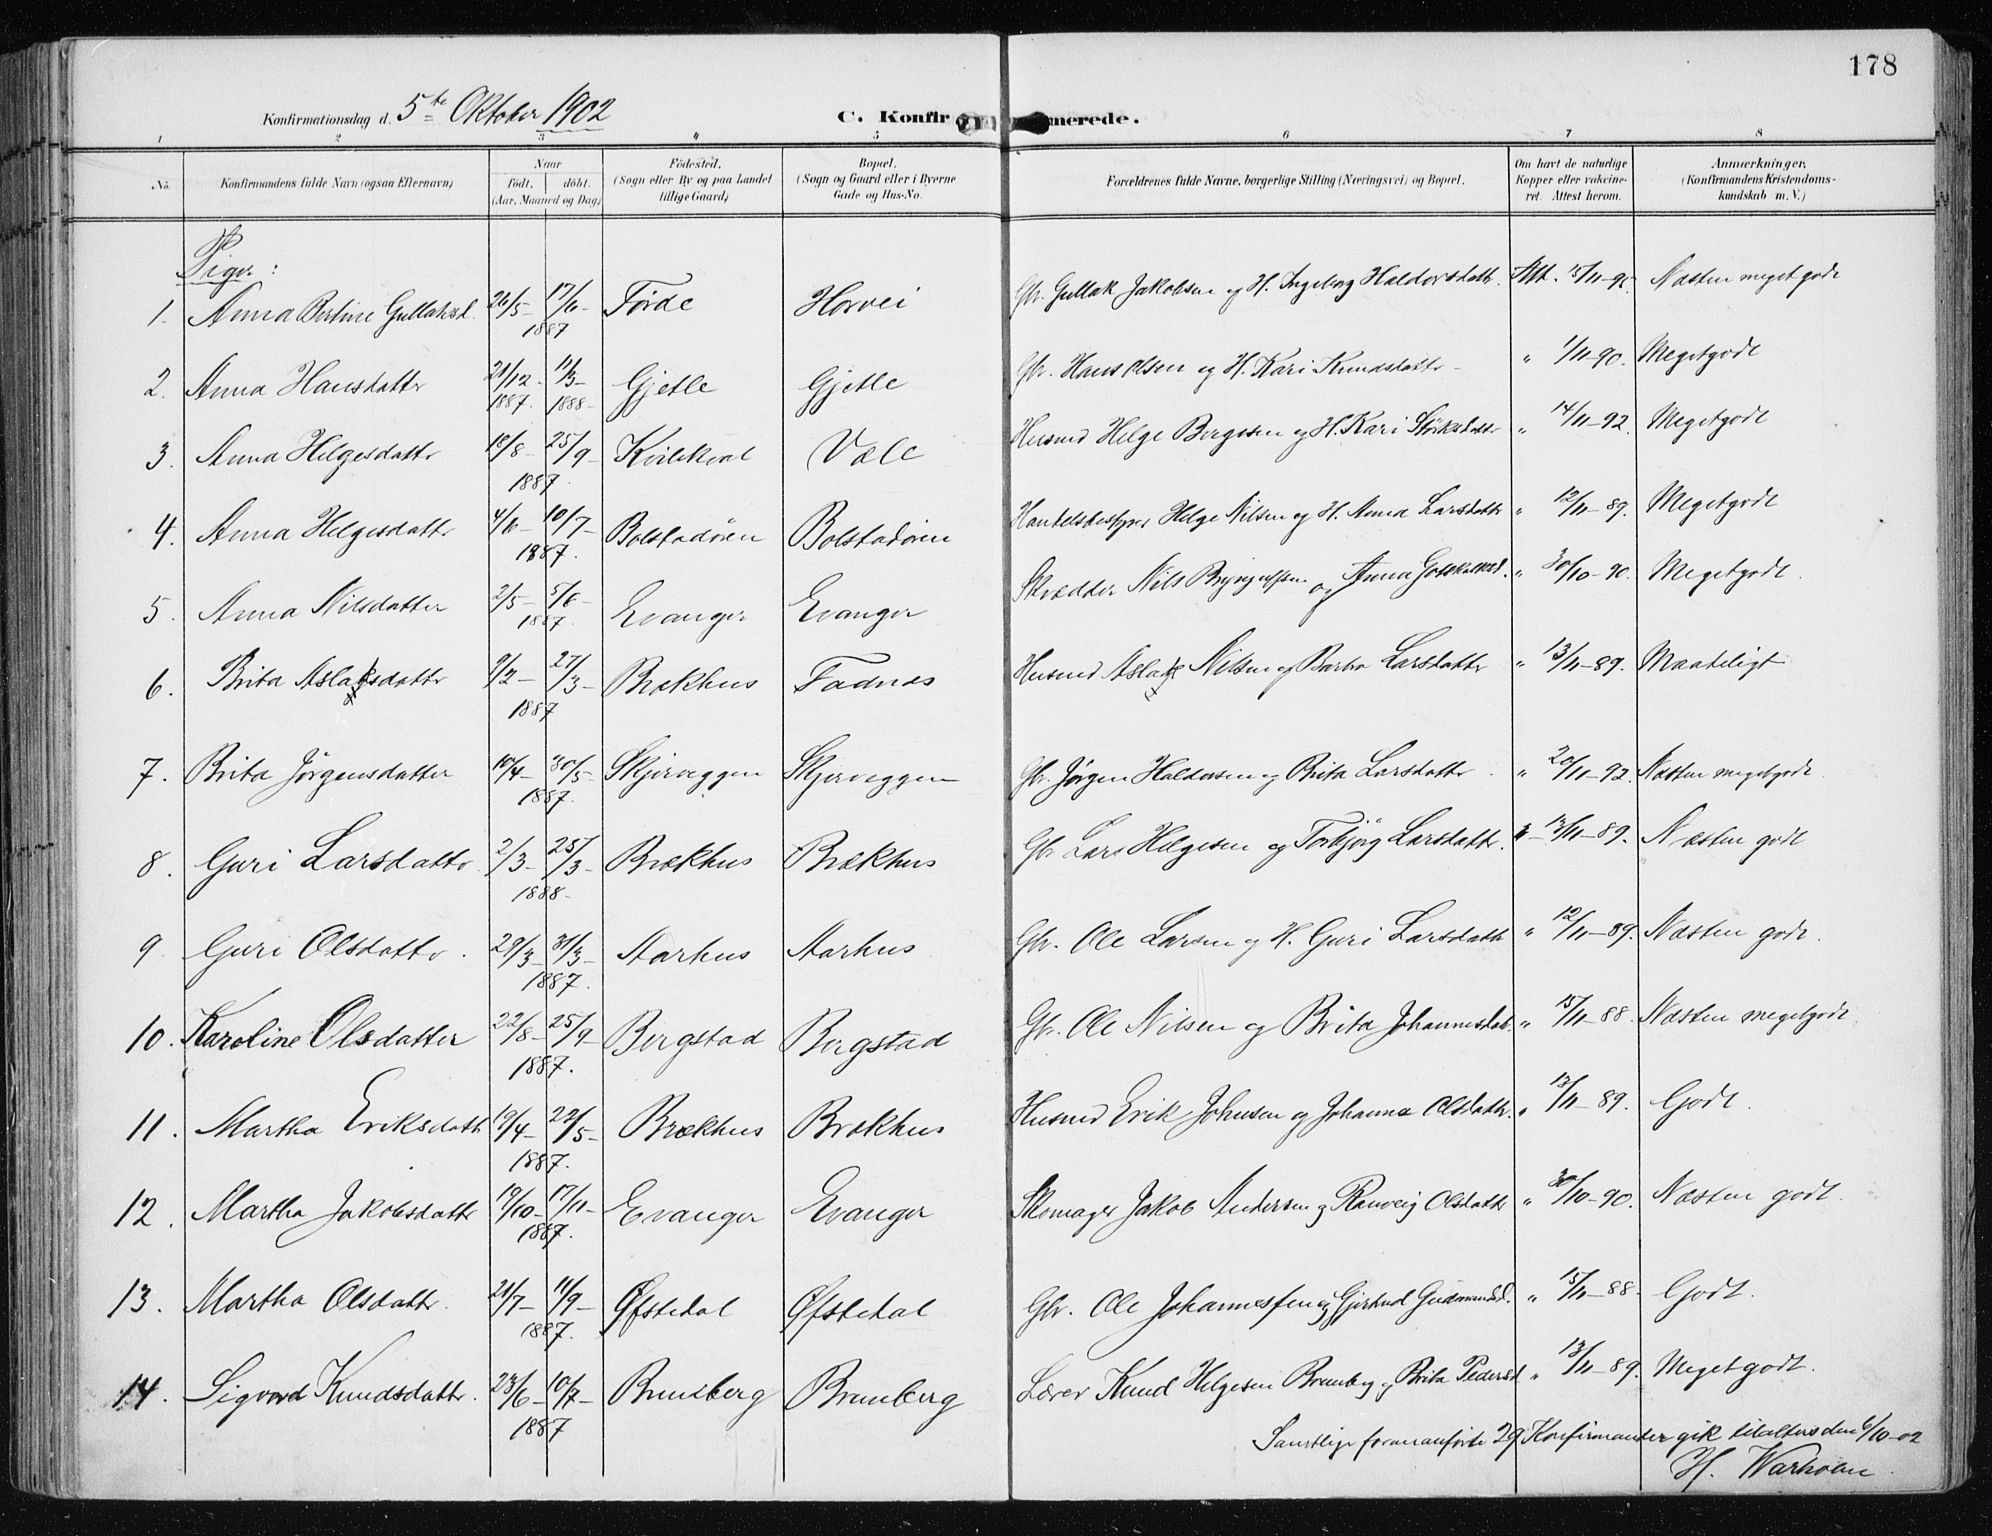 178
Konfirmationsdag d. 5te Oktober 1902 C. Konfirmerede.
1 2 3 4 5 6 7 8
No. Konfirmandens fulde Navn (ogsaa Efternavn) Naar født. døbt. (Aar, Maaned og Dag) Fødested. (Sogn eller By og paa Landet tillige Gaard) Bopæl. (Sogn og Gaard eller i Byerne Gade og Hus-No. Forældrenes fulde Navne, borgerlige Stilling (Næringsvei) og Bopæl. Om havt de naturlige Kopper eller vakcineret. Attest herom. Anmærkninger. (Konfirmandens Kristendomskundskab m. V.)
Piger:
1. Anna Bertine Gullaksd. 26/5- 17/6- 1887 Førde Horvei Gbr. Gullak Jakobsen og H. Ingeborg Haldorsdatter. Att. 15/11-9 Næsten meget godt
2. Anna Hansdatter 21/12- 1887. 11/3- 1888- Gjetle Gjetle Gbr. Hans Olsen og H. Kari Knudsdatter- " 1/11-90. Megetgodt
3. Anna Helgesdatter 18/8- 25/9- 1887. Kvilekval Væle Husmd Helge Bergesen og H. Kari Størksdatter " 14/11-92. Megetgodt
4. Anna Helgesdatter 4/6- 10/7- 1887. Bolstadøren Bolstadøren Handelsbestyrer Helge Nilsen og H. Anna Larsdatter " 12/11-89. Megetgodt
5. Anna Nilsdatter 2/5- 5/6- 1887. Evanger Evanger Skrædder Nils Brynjulfsen og Anna Gotskalksd. " 30/10-90. Megetgodt.
6. Brita Aslaksdatter 9/2- 27/3- 1887 Brækhus Fadnæs Husmd Aslak Nilsen og Barbra Larsdatter " 13/11-89. Maadeligt
7. Brita Jørgensdatter 10/4- 30/5- 1887. Skjerveggen Skjerveggen Gbr. Jørgen Haldorsen og Brita Larsdatter. " 20/11-92. Næsten megetgodt
8. Guri Larsdatter 2/3- 25/3- 1888- Brækhus Brækhus Gbr Lars Helgesen og Torbjørg Larsdatter. " 13/11-89. Næsten godt
9. Guri Olsdatter. 29/3- 31/3- 1887. Aarhus Aarhus Gbr. Ole Larsen og H. Guri Larsdatter " 12/11-89. Næsten godt.
10. Karoline Olsdatter 22/8- 25/9- 1887. Bergstad Bergstad Gbr. Ole Nilsen og Brita Johannesdat. " 15/11-88. Næsten megetgodt.
11. Martha Eriksdatter 19/4- 22/5- 1887. Brækhus Brækhus Husmd Erik Johnsen og Johanna Olsdatter. " 13/11-89. Godt.
12. Martha Jakobsdatter 19/10- 17/11- 1887. Evanger Evanger Skomager Jakob Andersen og Ranveig Olsdatter " 30/10-90. Næsten godt.
13. Martha Olsdatter. 21/7- 11/9- 1887. Øfstedal Øfstedal Gbr. Ole Johannessen og Gjertrud Gudmundsd. " 15/11-88. Godt.
14. Sigvord Knudsdatter. 23/6- 10/7- 1887 Brunberg Brunberg Lærer Knud Helgesen Brunberg og Brita Pedersd " 13/11-89. Megetgodt.
Samtlige forananførte 29 Konfirmanter gik tilalters den 6/10-02
H. Warholm